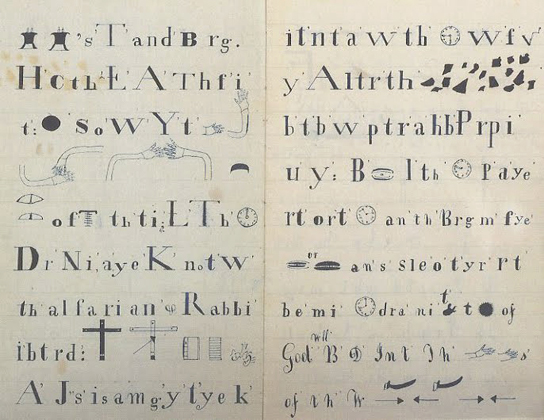 's T and B rg.
H c th E A Th f i
t: S o W Y t
of T th ti; L T h
D r N i, a y e K n o t W
th al f a r i an R abbi
i b t r d:
A J s i s a m g y t y e k
it n t a w th w f v
y A l t r t h
b t b w p t r a h b P r p i
u y: B l th P a y e
r t o r t an th B r g m f y e
or
an s s l e o t y r r t
b e m i d r a n i t & t of
will
God B D I n t I h s
of th W